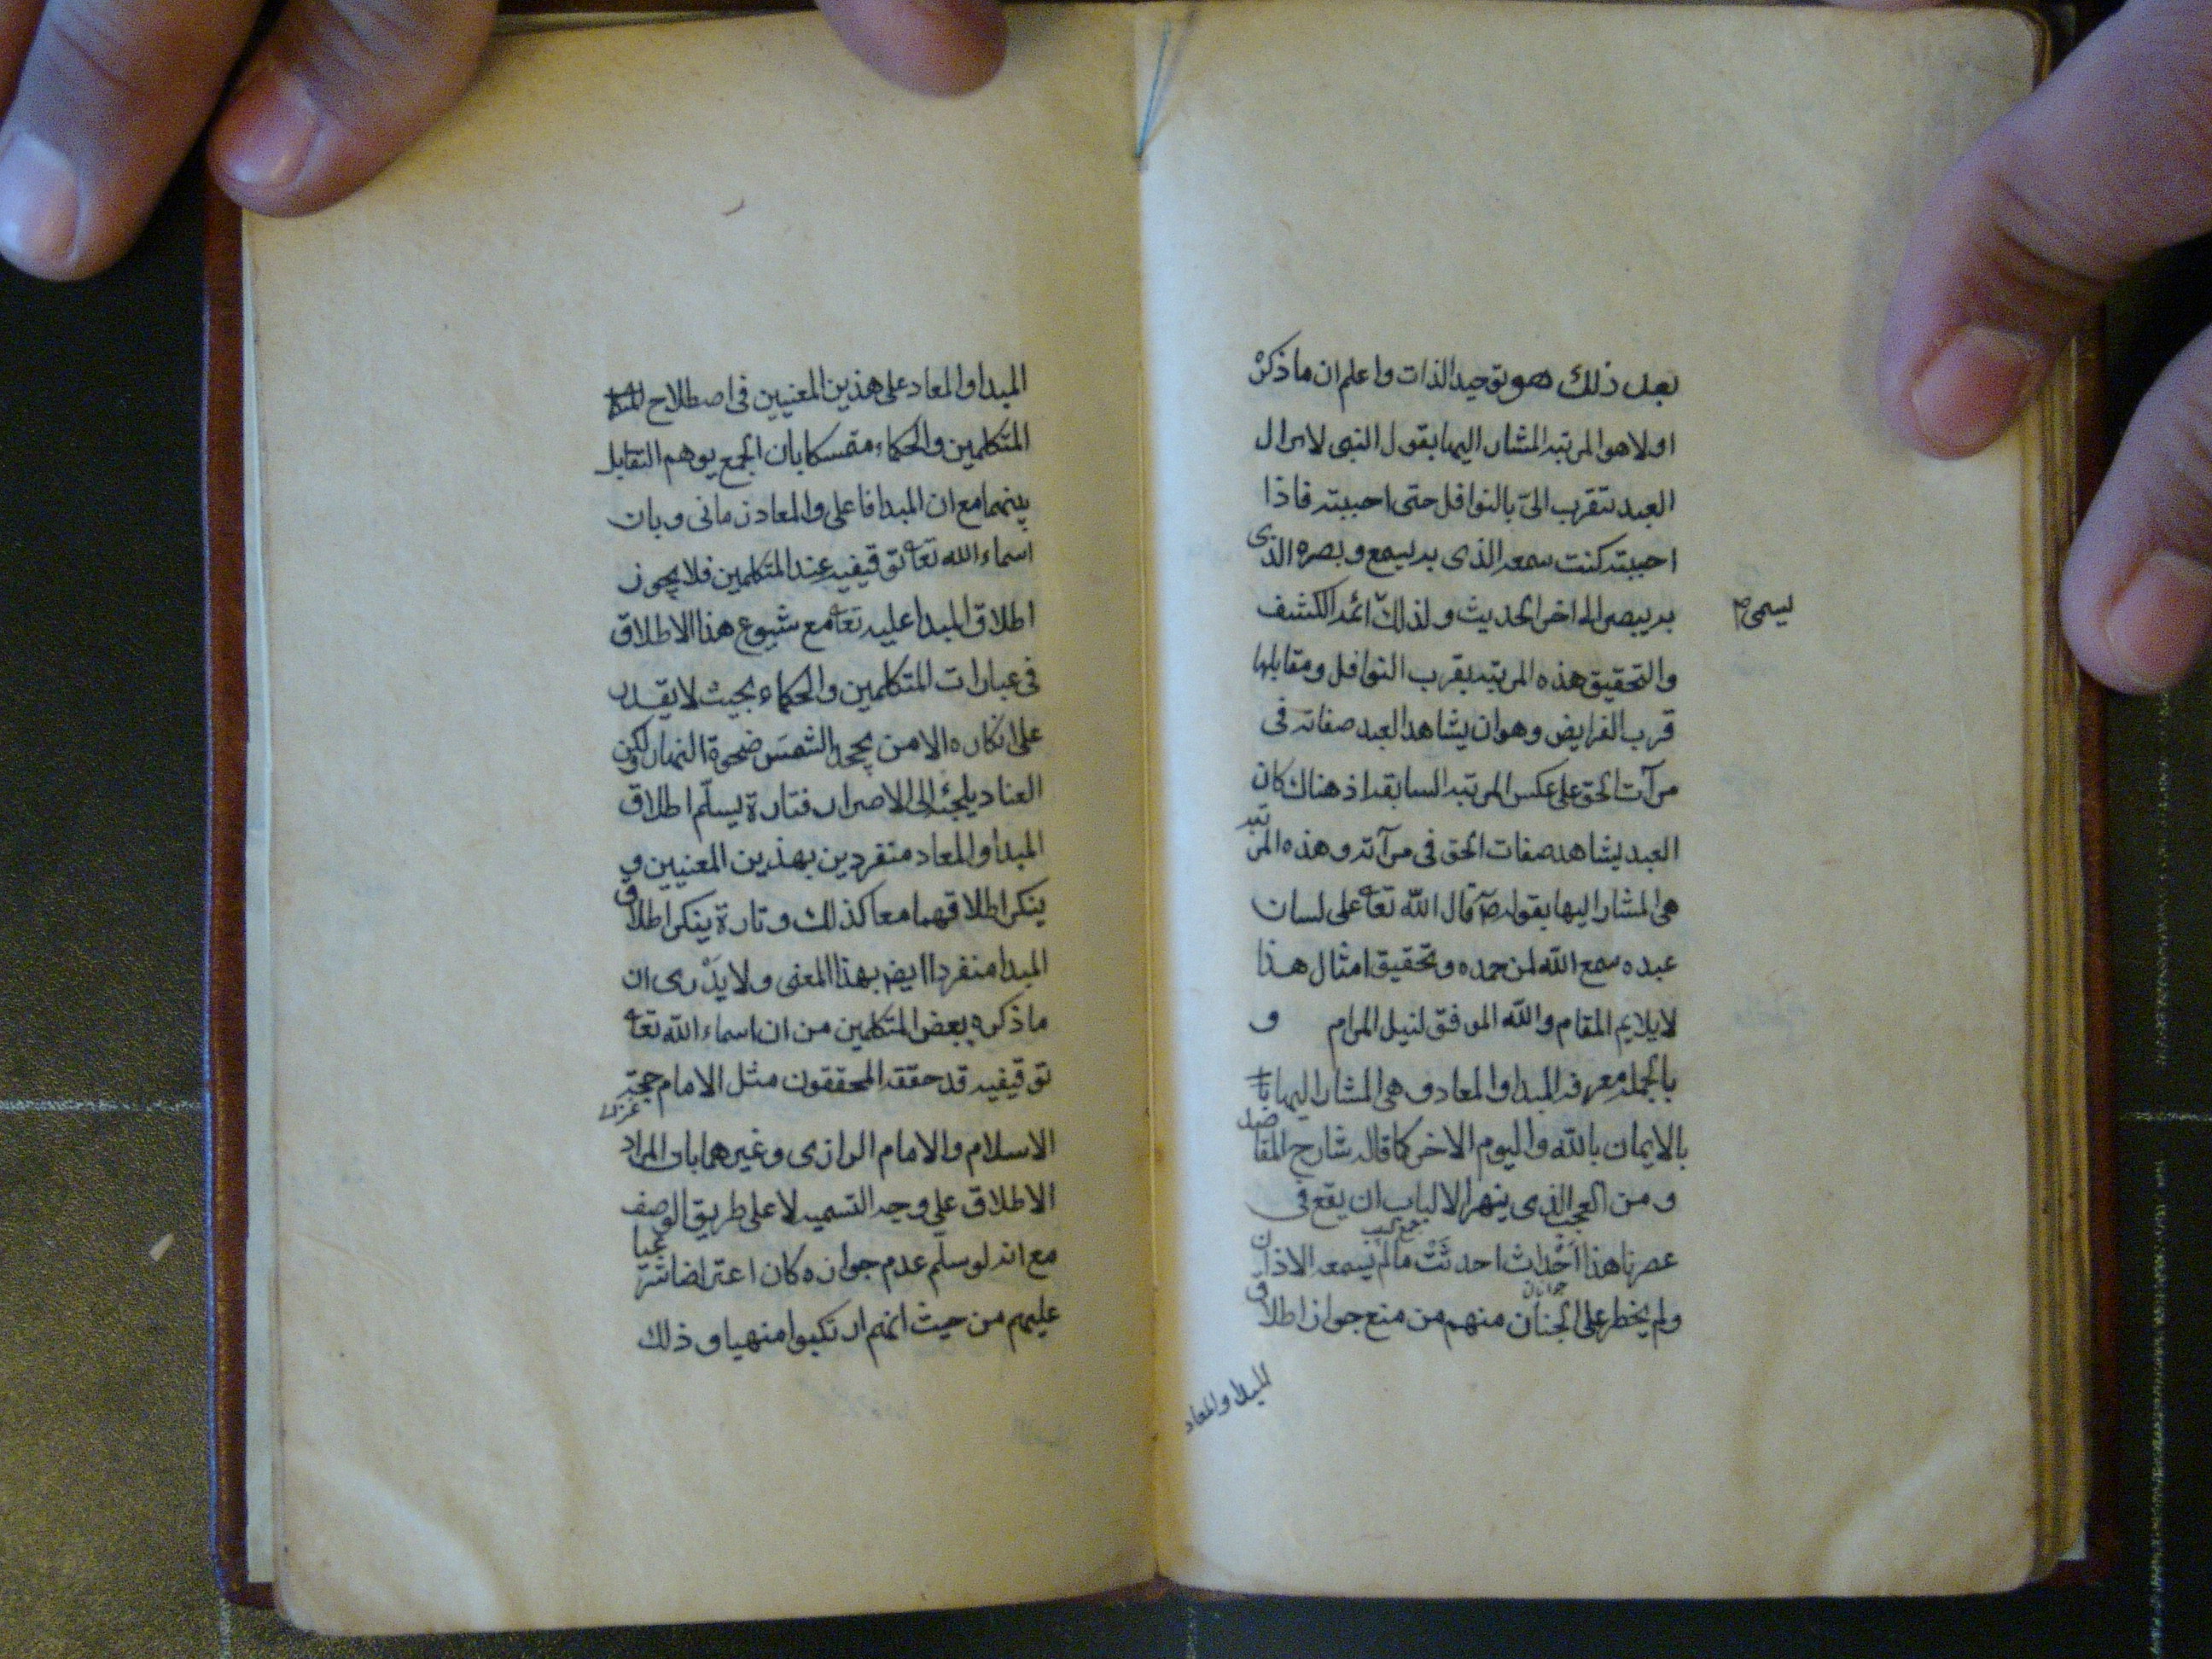 بعد ذلك هو توحيد الذات واعلم ان ما ذكر
اولا هو المرتبه المشار اليها بقول النبى لا يزال
العبد تتقرب الىّ بالنوافل حتى احببته فاذا
احببته كنت سمعه الذى به يسمع وبصره الذى
به يبصر الى اخر الحديث ولذلك ائمه الكشف
يسمى صح
والتحقيق هذه المرتبه بقرب النوافل ومقابلها
قرب الفرايض وهو ان يشاهد العبد صفاته فى
مرآت الحق على عكس المرتبه السابقه اذ هناك كان
العبد يشاهد صفات الحق فى مرآته وهذه المرتبه
هى المشار اليها بقوله صم قال الله تعا على لسان
عبده سمع الله لمن حمده وتحقيق امثال هذا
لا يلايم المقام والله الموفق لنيل المرام و
بالجمله معرفه المبدا والمعاد و هى المشار اليها
بالايمان بالله واليوم الاخر كما قاله شارح المقاصد
ومن العجب الذى ينهر الالباب ان يقع فى
جمع لبيب
عصرنا هذا اَحْداث احدثَتْ ما لم يسمعه الاذان
ولم يخطر على الجنان منهم من منع جواز اطلاق
المبدا والمعاد
المبدا والمعاد على هذين المعنيين فى اصطلاح
المتكلمين والحكماء متمسكا بان الجمع يوهم التقابل
بينهما مع ان المبدا فاعلى والمعاد زمانى وبان
اسماء الله تعا توقيفيه عند المتكلمين فلا يجوز
اطلاق المبدا عليه تعا مع شيوع هذا الاطلاق
فى عبارات المتكلمين والحكماء بحيث لا يقدر
على انكاره الا من يجحد الشمسَ ضحوة النهار لكن
العناد يلجئه الى الاصرار فتارة يسلّم اطلاق
المبدا والمعاد منفردين بهذين المعنيين و
ينكر اطلاقهما معا كذلك وتارة ينكر اطلاق
المبدا منفردا ايضا بهذا المعنى ولا يدْرى ان
ما ذكره بعض المتكلمين من ان اسماء الله تعا
توقيفيه قد حققه المحققون مثل الامام حجة
الاسلام والامام الرازى وغيرهما بان المراد
الاطلاق على وجه التسميه لا على طريق الوصف
مع انه لو سلّم عدم جوازه كان اعتراضا شرعيا
عليهم من حيث انهم ارتكبوا منهيا و ذلك